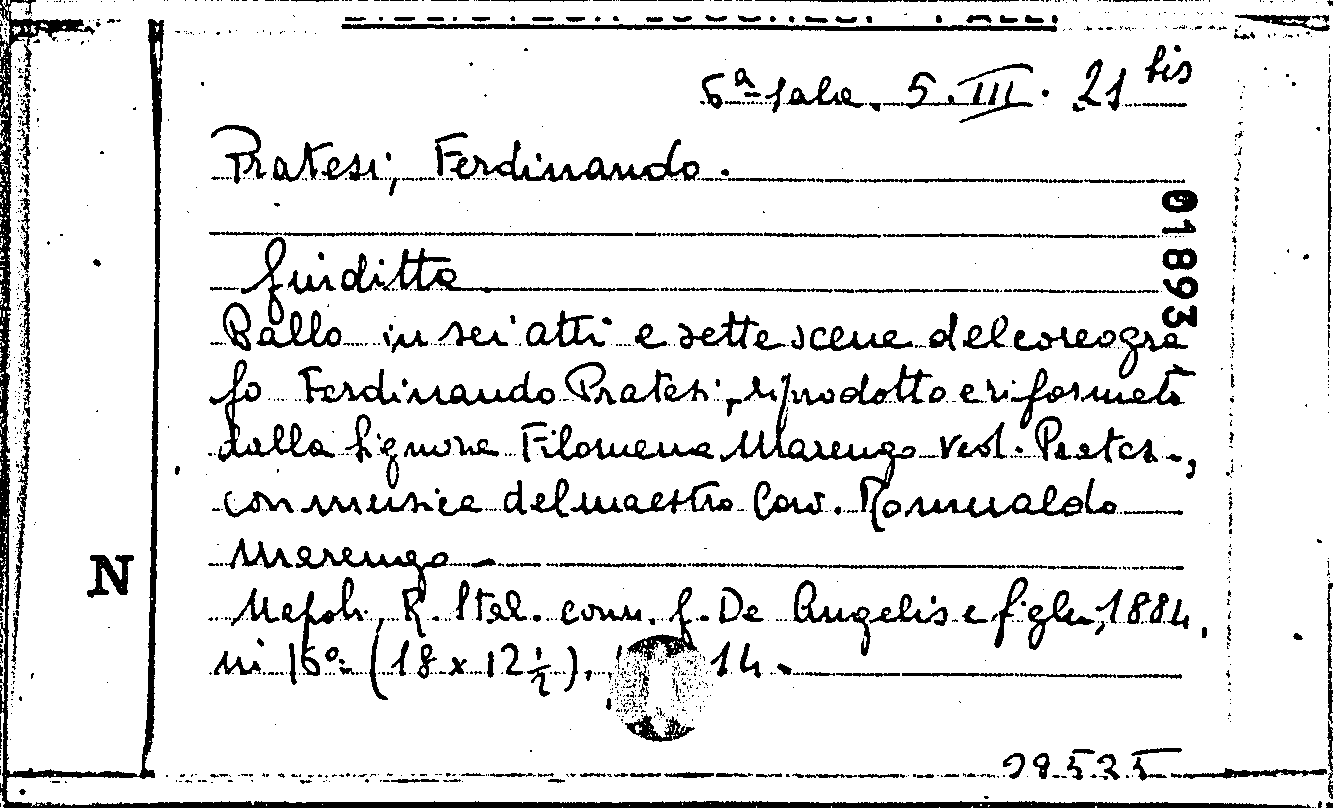 6ª Sala. 5. III. 21 bis
Pratesi, Ferdinando.
01893
Giuditta.
Ballo in sei atti e sette scene del coreogra
fo Ferdinando Pratesi, riprodotto e riformato
dalla Signora Filomena Marengo ved. Pratesi,
con musica del maestro Cav. Romualdo
Marengo
N
Napoli, R. Stab. comm. G. De Angelis e figlio, 1884,
in 16º (18 x 12 1/2), 14.
28535